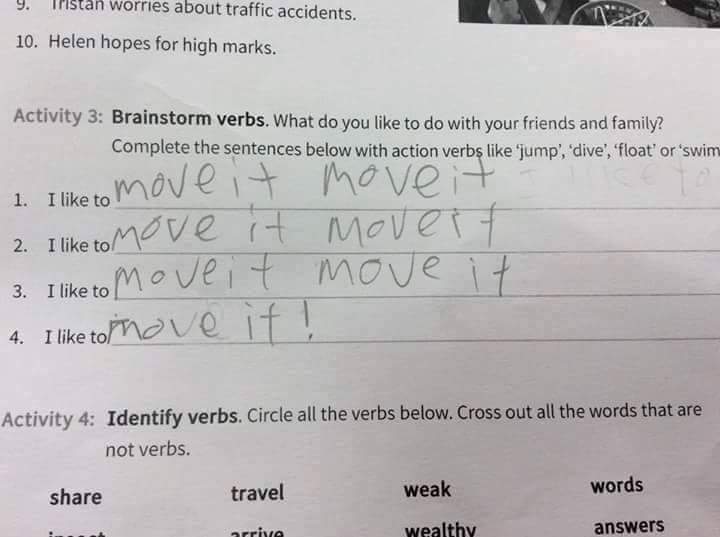 9. Tristan worries about traffic accidents.
10. Helen hopes for high marks.
Activity 3: Brainstorm verbs. What do you like to do with your friends and family?
Complete the sentences below with action verbs like 'jump', 'dive', 'float' or 'swim
1. I like to move it move it I like to
2. I like to move it move it
3. I like to move it move it
4. I like to move it!
Activity 4: Identify verbs. Circle all the verbs below. Cross out all the words that are
not verbs.
share travel weak words
insect arrive wealthy answers